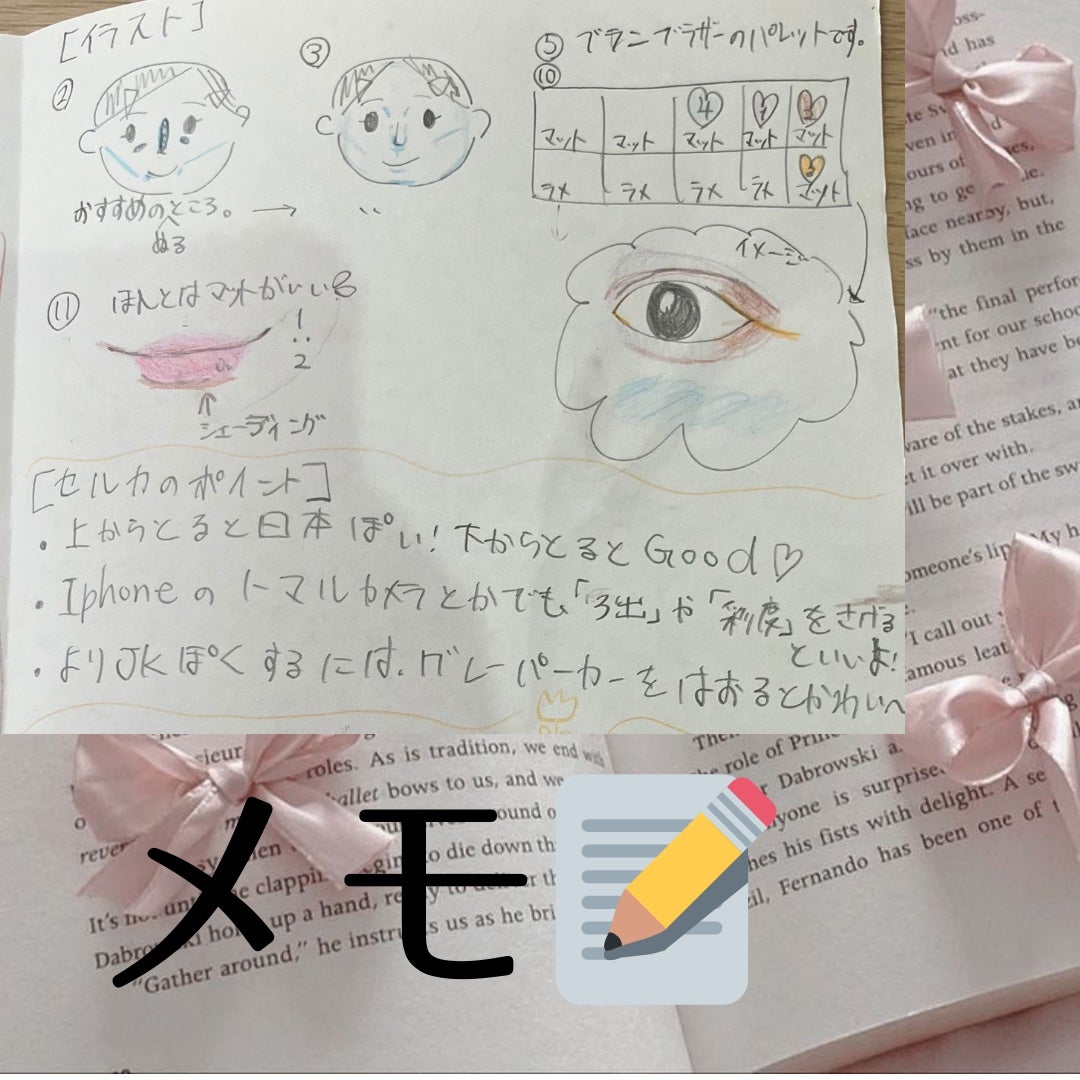 [イラスト]
②
③
おすすめのところ。→
ぬる
⑤ ブラニブラザーのパレットです。
⑩
マット マット マット マット マット
ラメ ラメ ラメ ラメ マット
イメージ
⑪ ほんとはマットがいい
1
:
2
シェーディング
[セルカのポイント]
・上からとると日本ぽい!下からとるとGood♡
・Iphoneのノーマルカメラとかでも、「」や「彩度」をさげる
といいよ!
・よりJKぽくするには、グレーパーカーをはおるとかわいい
メモ
oss-
nd has
te
ven in
ours of
ng to ge
ace nearby, but,
ss by them in the
"the final perfor
nt for our schoo
at they have be
vare of the stakes, a
t it over with.
ill be part of the sw
omeone's lip My h
I call out
amous leat
sieur
roles. As is tradition, we end with
ballet bows to us, and we
ound o
rever
to die down th
It's
e clappin
up a hand, re
to deliver
Dabrowski
"Gather around," he instructs us as he bri
role of Prin
Dabrowski a
yone is surprise
his fists with delight. A se
il, Fernando has been one of t